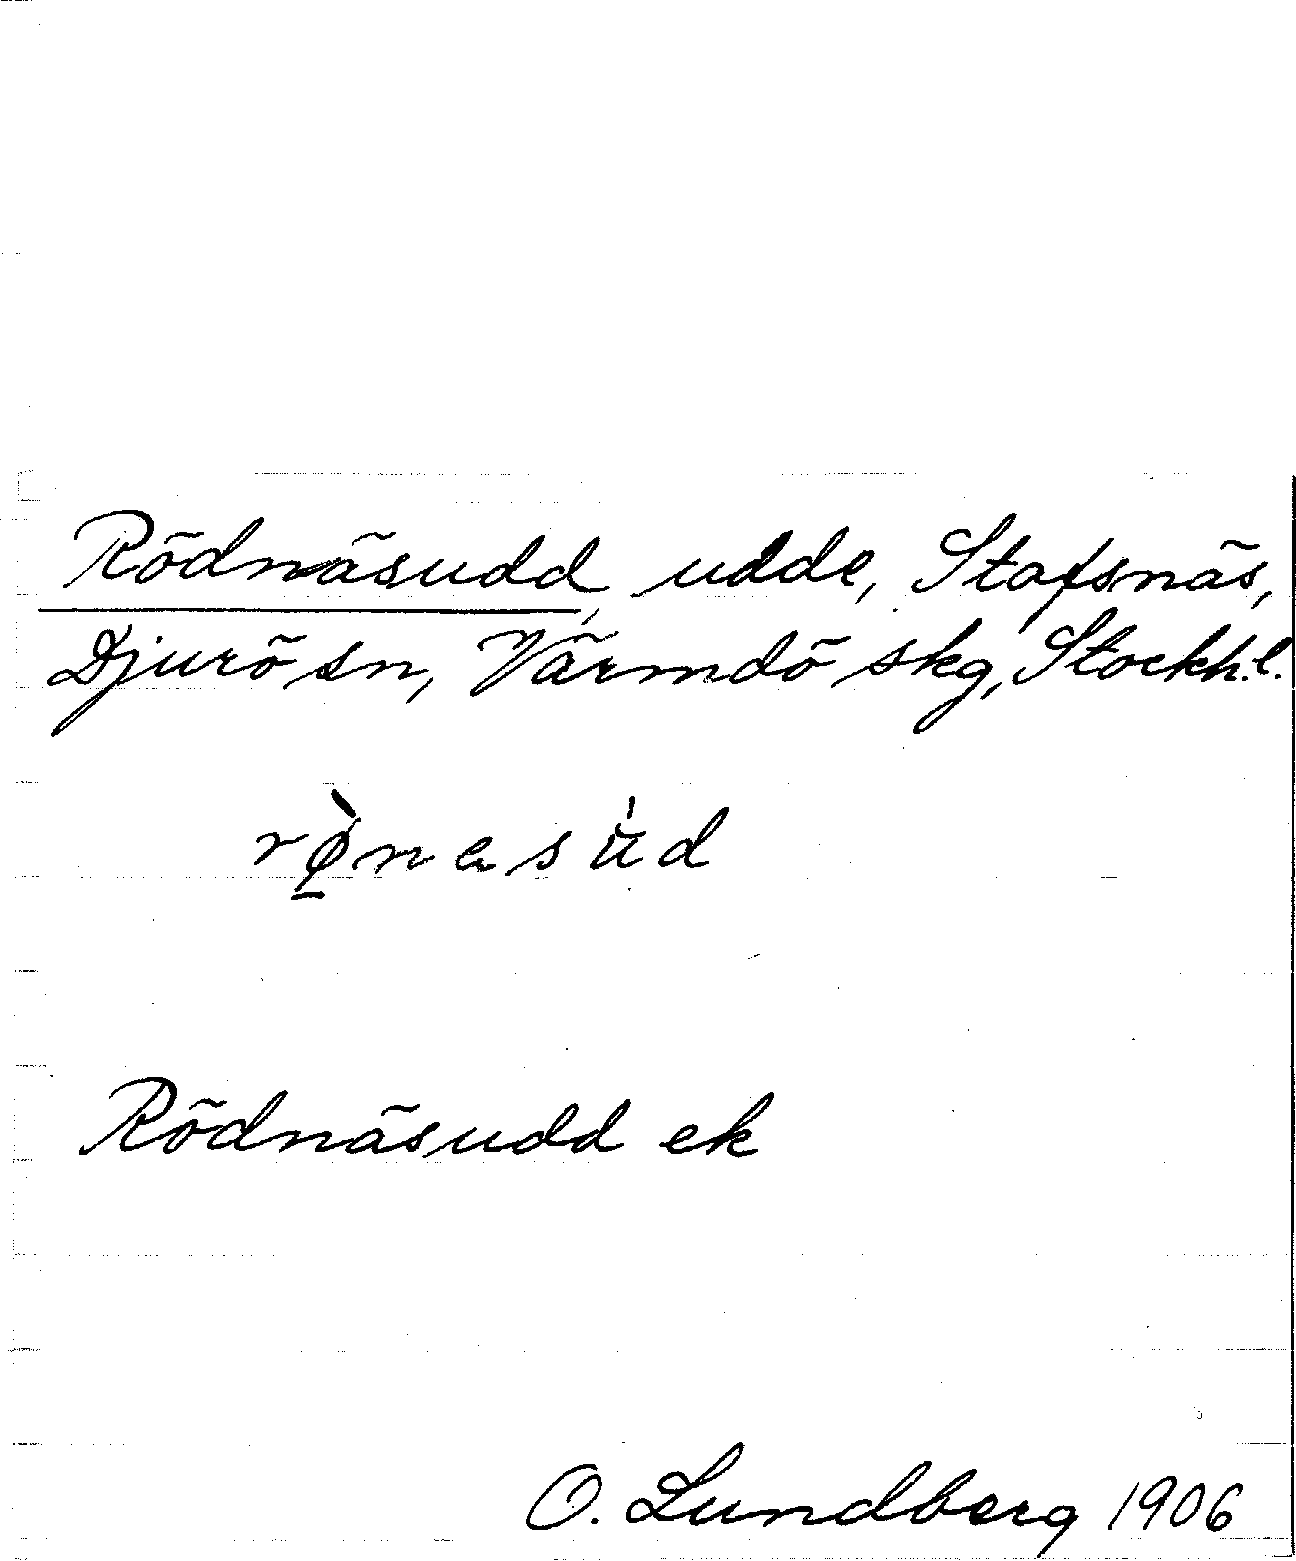 Rödnäsudd, udde, Stafsnäs,
Djurö sn, Värmdö skg, Stockh.l.
rø̱̀nasu̍d
Rödnäsudd ek
O. Lundberg 1906